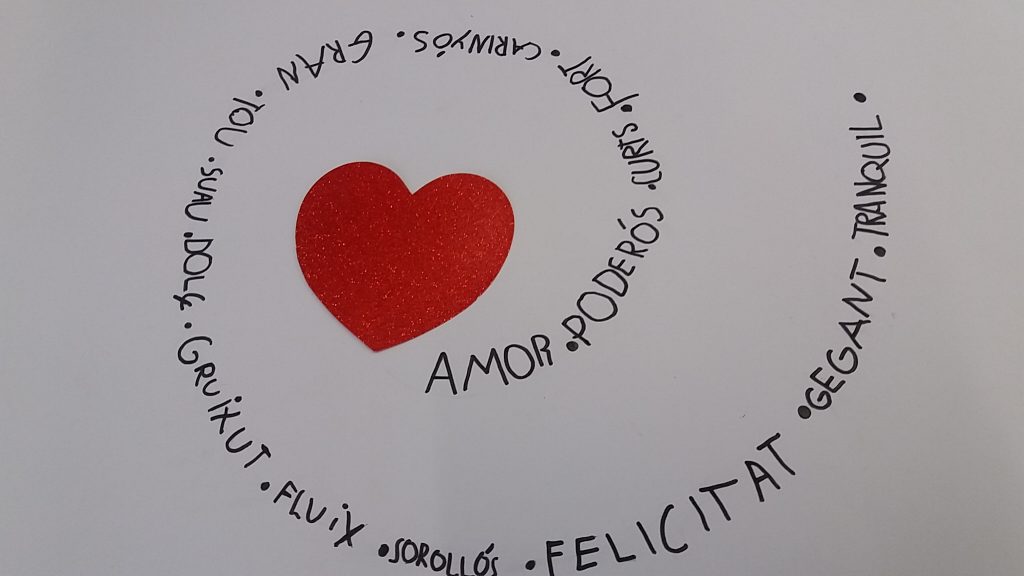 AMOR • PODERÓS • CURTS • FORT • CARINYÓS • GRAN • TOU • SUAU • DOLÇ • GRUiXUT • FLUiX • SOROLLÓS • FELICITAT • GEGANT • TRANQUIL •